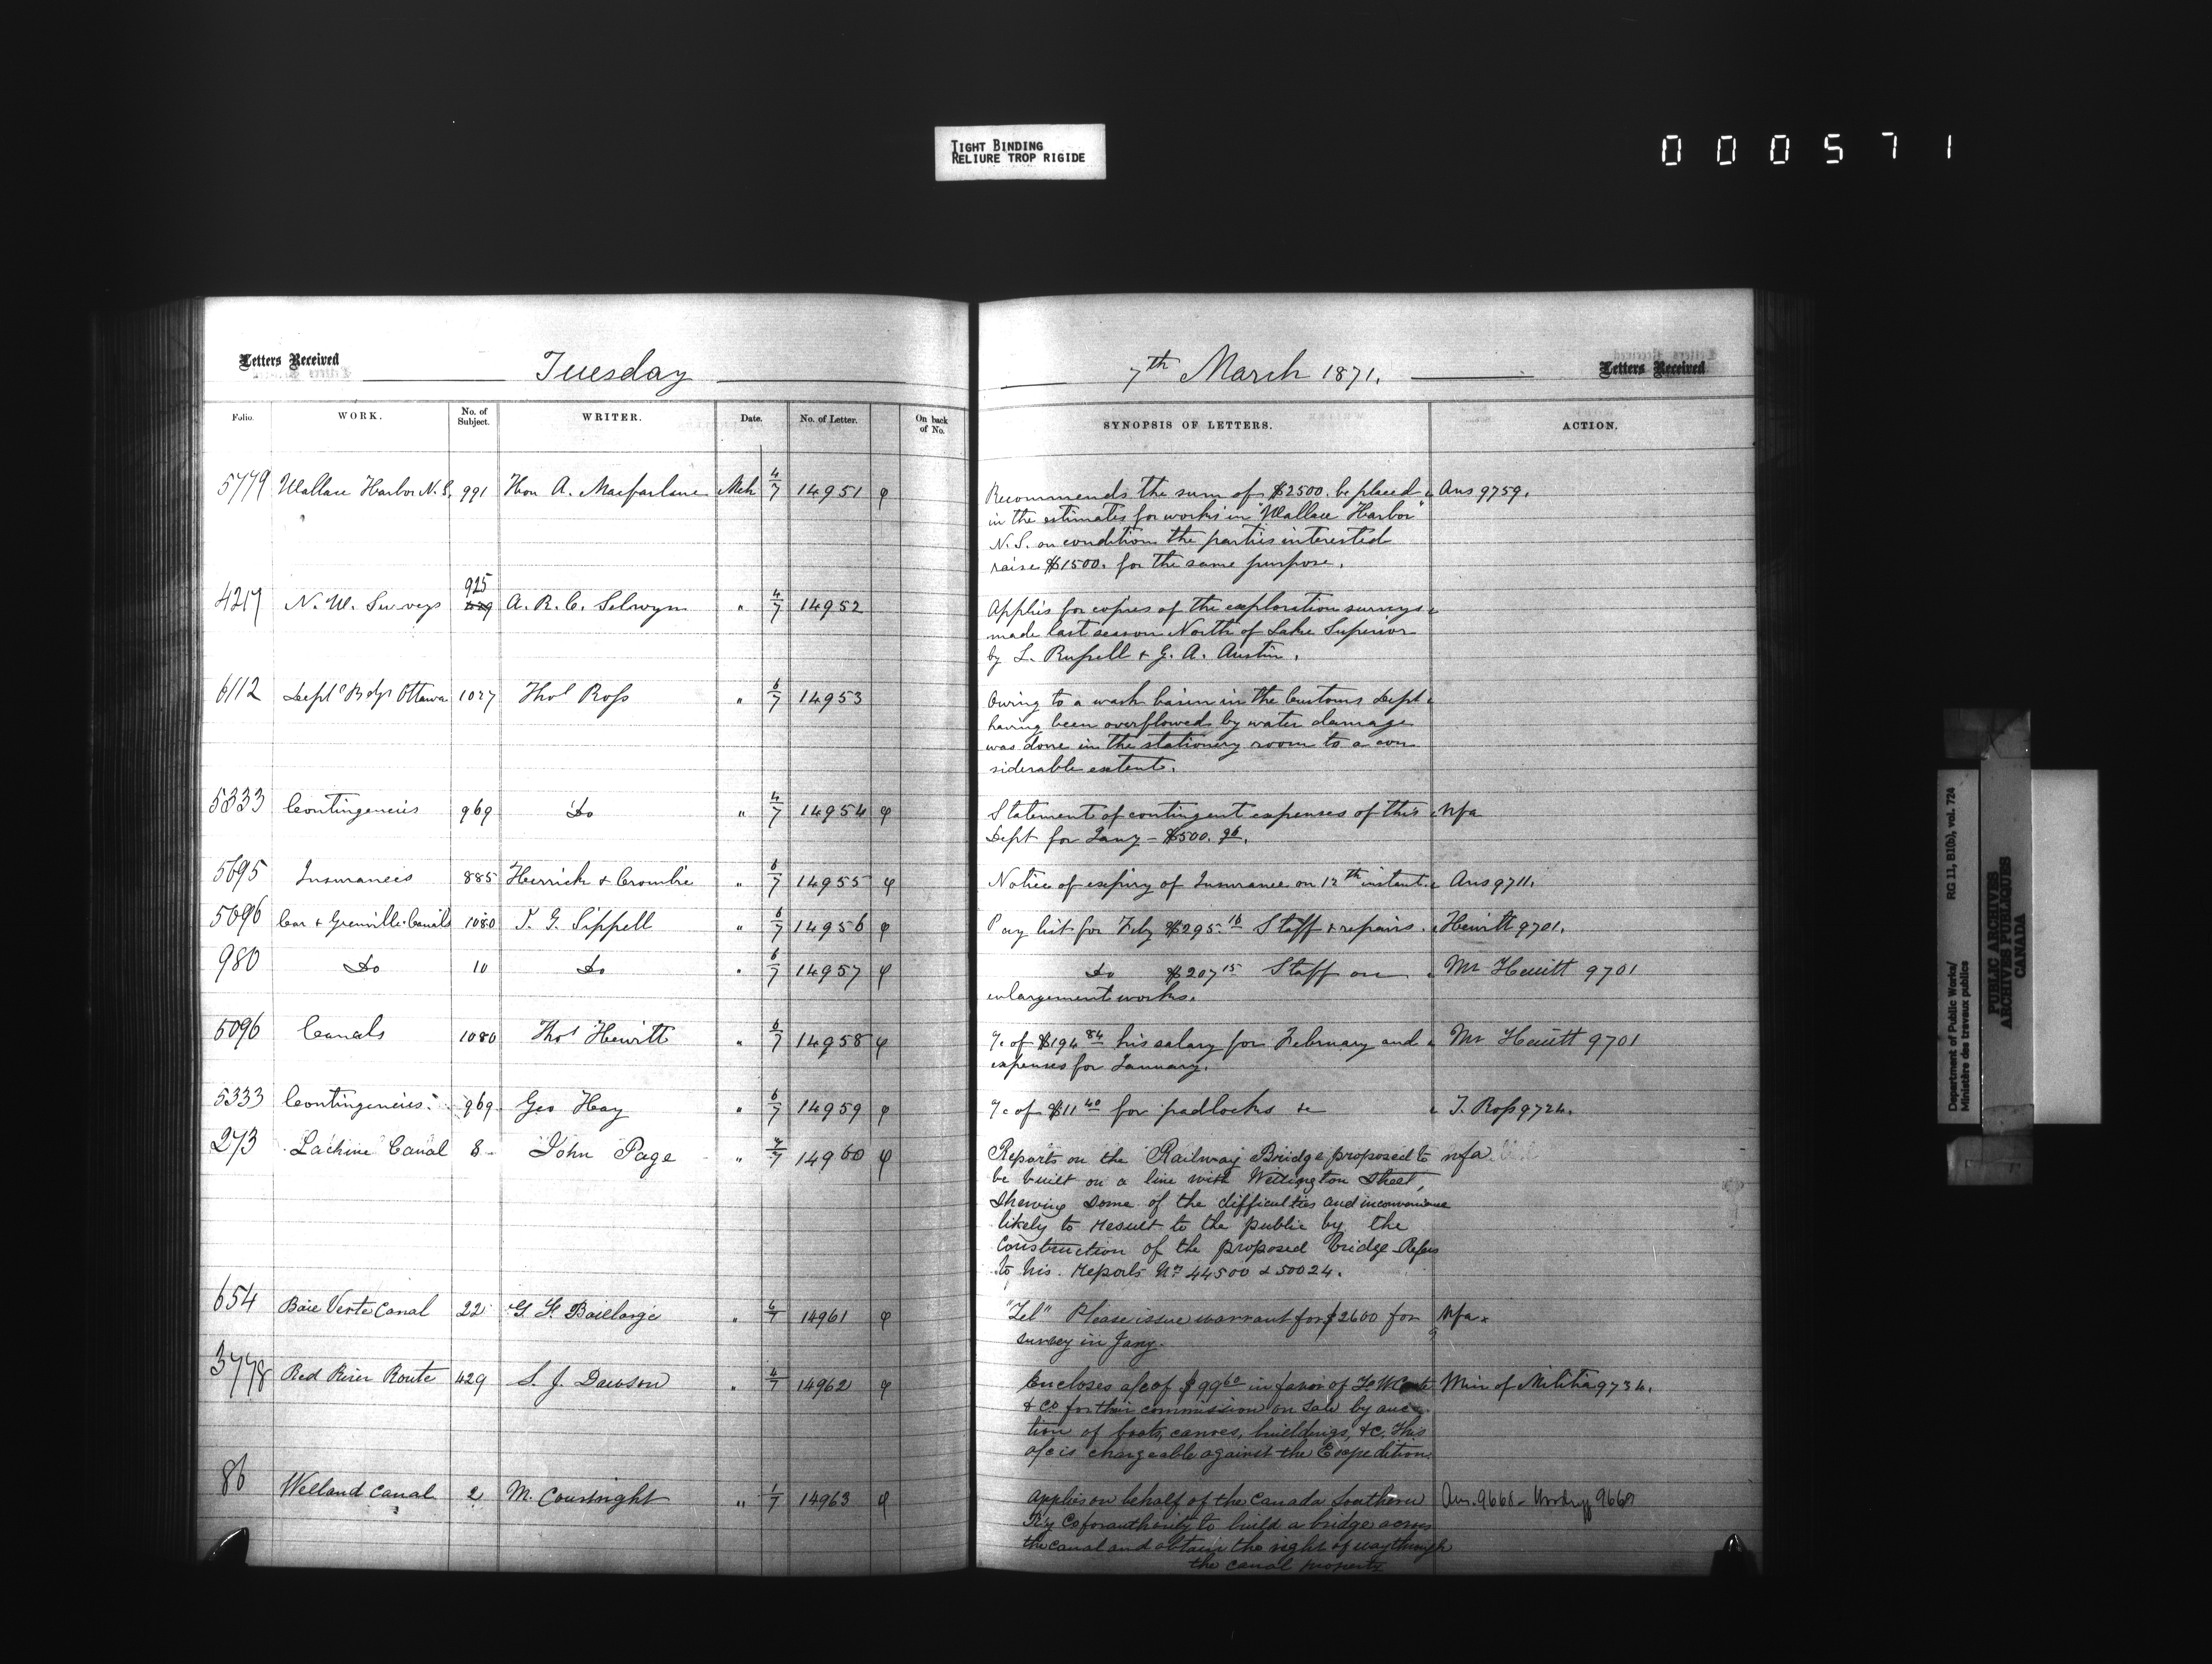 TIGHT BINDING
RELIURE TROP RIGIDE
000571
Letters Received Tuesday
7th March 1871. Letters Received
Folio. WORK. No. of Subject. WRITER. Date. No. of Letter. On back of No. SYNOPSIS OF LETTERS. ACTION.
5779 Wallace Harbor N.S. 991 Hon A. Macfarlane Mch 4/7 14951 φ Recommends the sum of $2500. be placed Ans 9759.
in the estimates for works in "Wallace Harbor"
N.S. on condition the parties interested
raise $1500. for the same purpose.
925
4217 N.W. Surveys 429 A.R.C. Selwyn " 4/7 14952 Applies for copies of the exploration surveys
made last season North of Lake Superior
by L. Russell & G. A. Austin.
6112 Deptl Bdgs Ottawa 1027 Thos Ross " 6/7 14953 Owing to a wash basin in the Customs Dept
having been overflowed by water damage
was done in the stationery room to a con
siderable extent.
5333 Contingencies 969 Do " 4/7 14954 φ Statement of contingent expenses of this nfa
Dept for Jany - $500.96.
5695 Insurances 885 Herrick & Crombie " 6/7 14955 φ Notice of expiry of Insurance on 12th instant. Ans 9711.
5096 Car & Grenville Canals 1080 T. G. Sippell " 6/7 14956 φ Pay list for Feby $295.16 Staff & repairs. Hewitt 9701.
980 Do 10 Do " 6/7 14957 φ Do $207 15 Staff on Mr Hewitt 9701
enlargement works.
5096 Canals 1080 Thos Hewitt " 6/7 14958 φ a/c of $194 84 his salary for February and Mr Hewitt 9701
expenses for January.
5333 Contingencies. 969. Geo Hay " 6/7 14959 φ a/c of $11 40 for padlocks &c T. Ross 9724.
273 Lachine Canal 8 John Page " 4/7 14960 φ Reports on the Railway Bridge proposed to nfa.
be built on a line with Wellington Street,
Shewing Some of the difficulties and inconvenience
likely to result to the public by the
Construction of the proposed bridge. Refers
to his Reports Nos 44500 & 50024.
654 Baie Verte Canal 22 G. F. Baillargé " 6/7 14961 φ "Tel" Please issue warrant for $2600 for nfa.
survey in Jany.
3778 Red River Route 429 S. J. Dawson " 4/7 14962 φ Encloses a/c of $99 60 in favor of Min of Militia 9734.
& Co for their commission on Sale by auc
tion of boats, canoes, buildings, &c. This
a/c is chargeable against the Expedition
86 Welland Canal 2 M. Courtright " 1/7 14963 φ Applies on behalf of the Canada Southern Ans. 9668
Ry Co for authority to build a bridge across
the Canal and obtain the right of way through
the canal property
Department of Public Works/ RG 11, B1(b), vol. 724
Ministère des travaux publics
PUBLIC ARCHIVES
ARCHIVES PUBLIQUES
CANADA